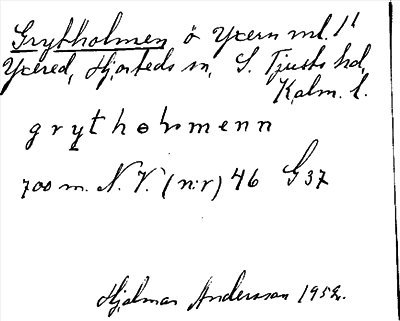 Grytholmen ö Yxern ml. 1t
Yxered, Hjorteds sn, S. Tjusts hd,
Kalm. l.
grytholmenn
700 m. N.V. (n:r) 46 G 37
Hjalmar Andersson 1952.